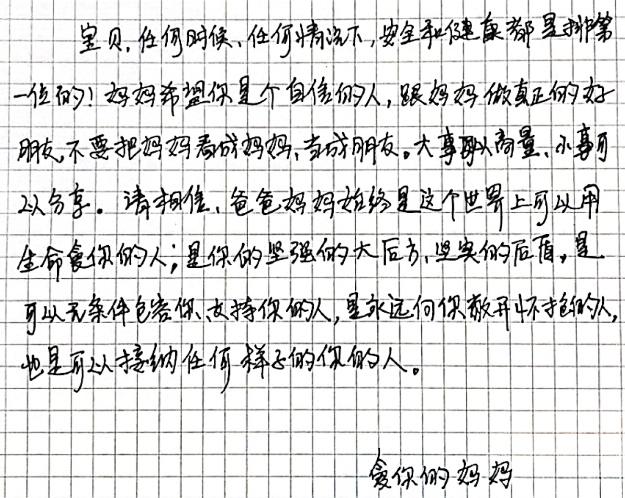 宝贝，任何时候、任何情况下，安全和健康都是排第
一位的！妈妈希望你是个自信的人，跟妈妈做真正的好
朋友，不要把妈妈看成妈妈，当成朋友。大事可以商量、小事可
以分享。请相信，爸爸妈妈始终是这个世界上可以用
生命爱你的人；是你的坚强的大后方、坚实的后盾，是
可以无条件包容你、支持你的人，是永远向你敞开怀抱的人，
也是可以接纳任何样子的你的人。
爱你的妈妈